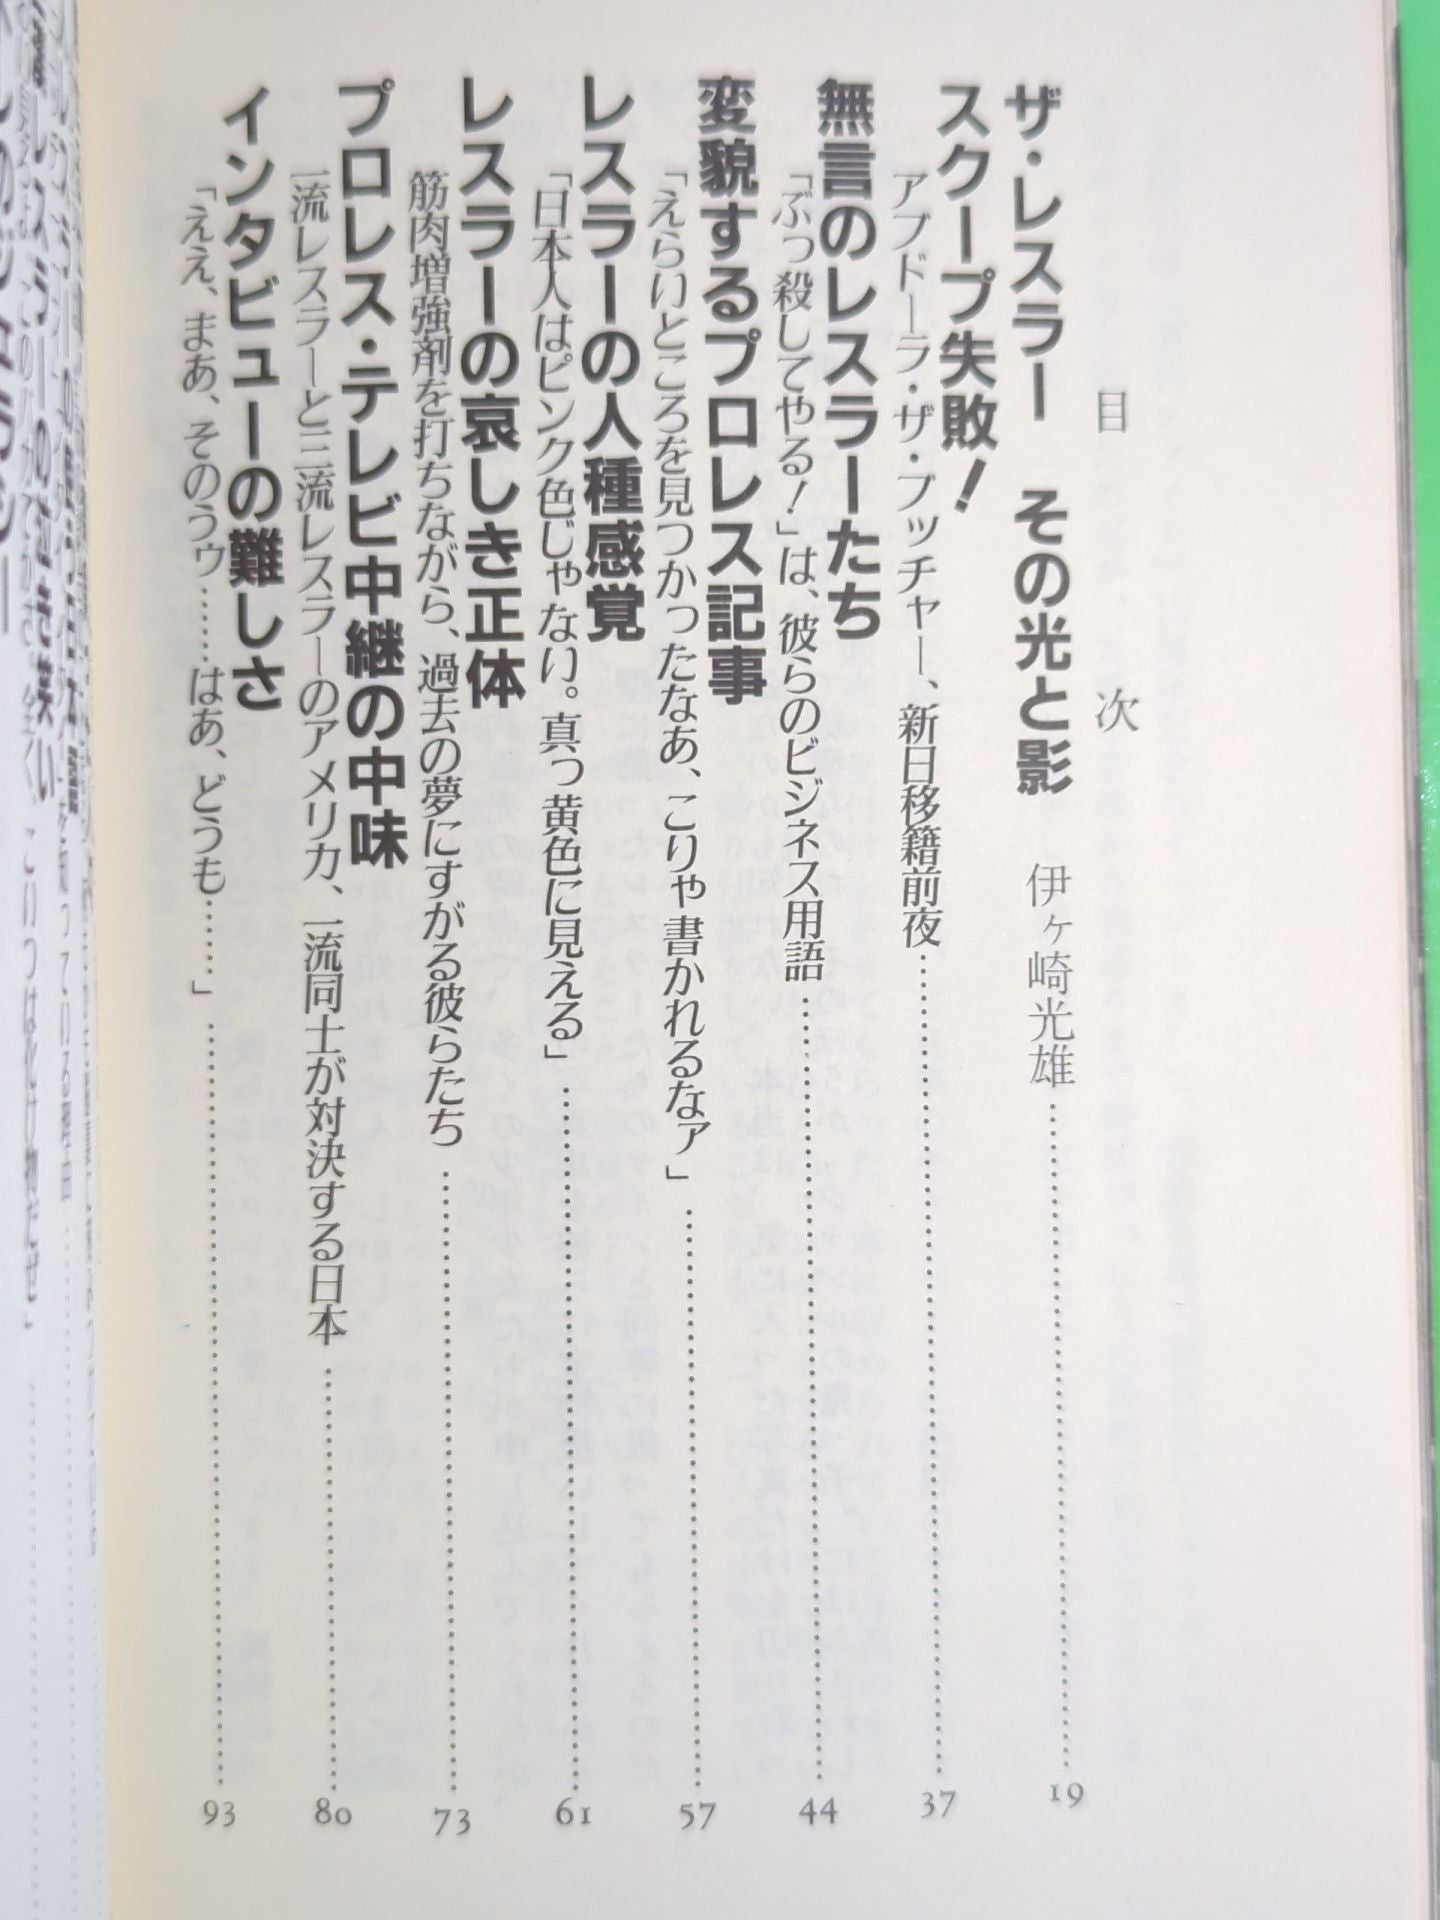 目次
ザ・レスラー その光と影 伊ヶ崎光雄……19
スクープ失敗!
アブドーラ・ザ・ブッチャー、新日移籍前夜……37
無言のレスラーたち
「ぶっ殺してやる!」は、彼らのビジネス用語……44
変貌するプロレス記事
「えらいところを見つかったなあ、こりゃ書かれるなァ」……57
レスラーの人種感覚
「日本人はピンク色じゃない。真っ黄色に見える」……61
レスラーの哀しき正体
筋肉増強剤を打ちながら、過去の夢にすがる彼らたち……73
プロレス・テレビ中継の中味
一流レスラーと三流レスラーのアメリカ、一流同士が対決する日本……80
インタビューの難しさ
「ええ、まあ、そのうゥ……はあ、どうも……」……93